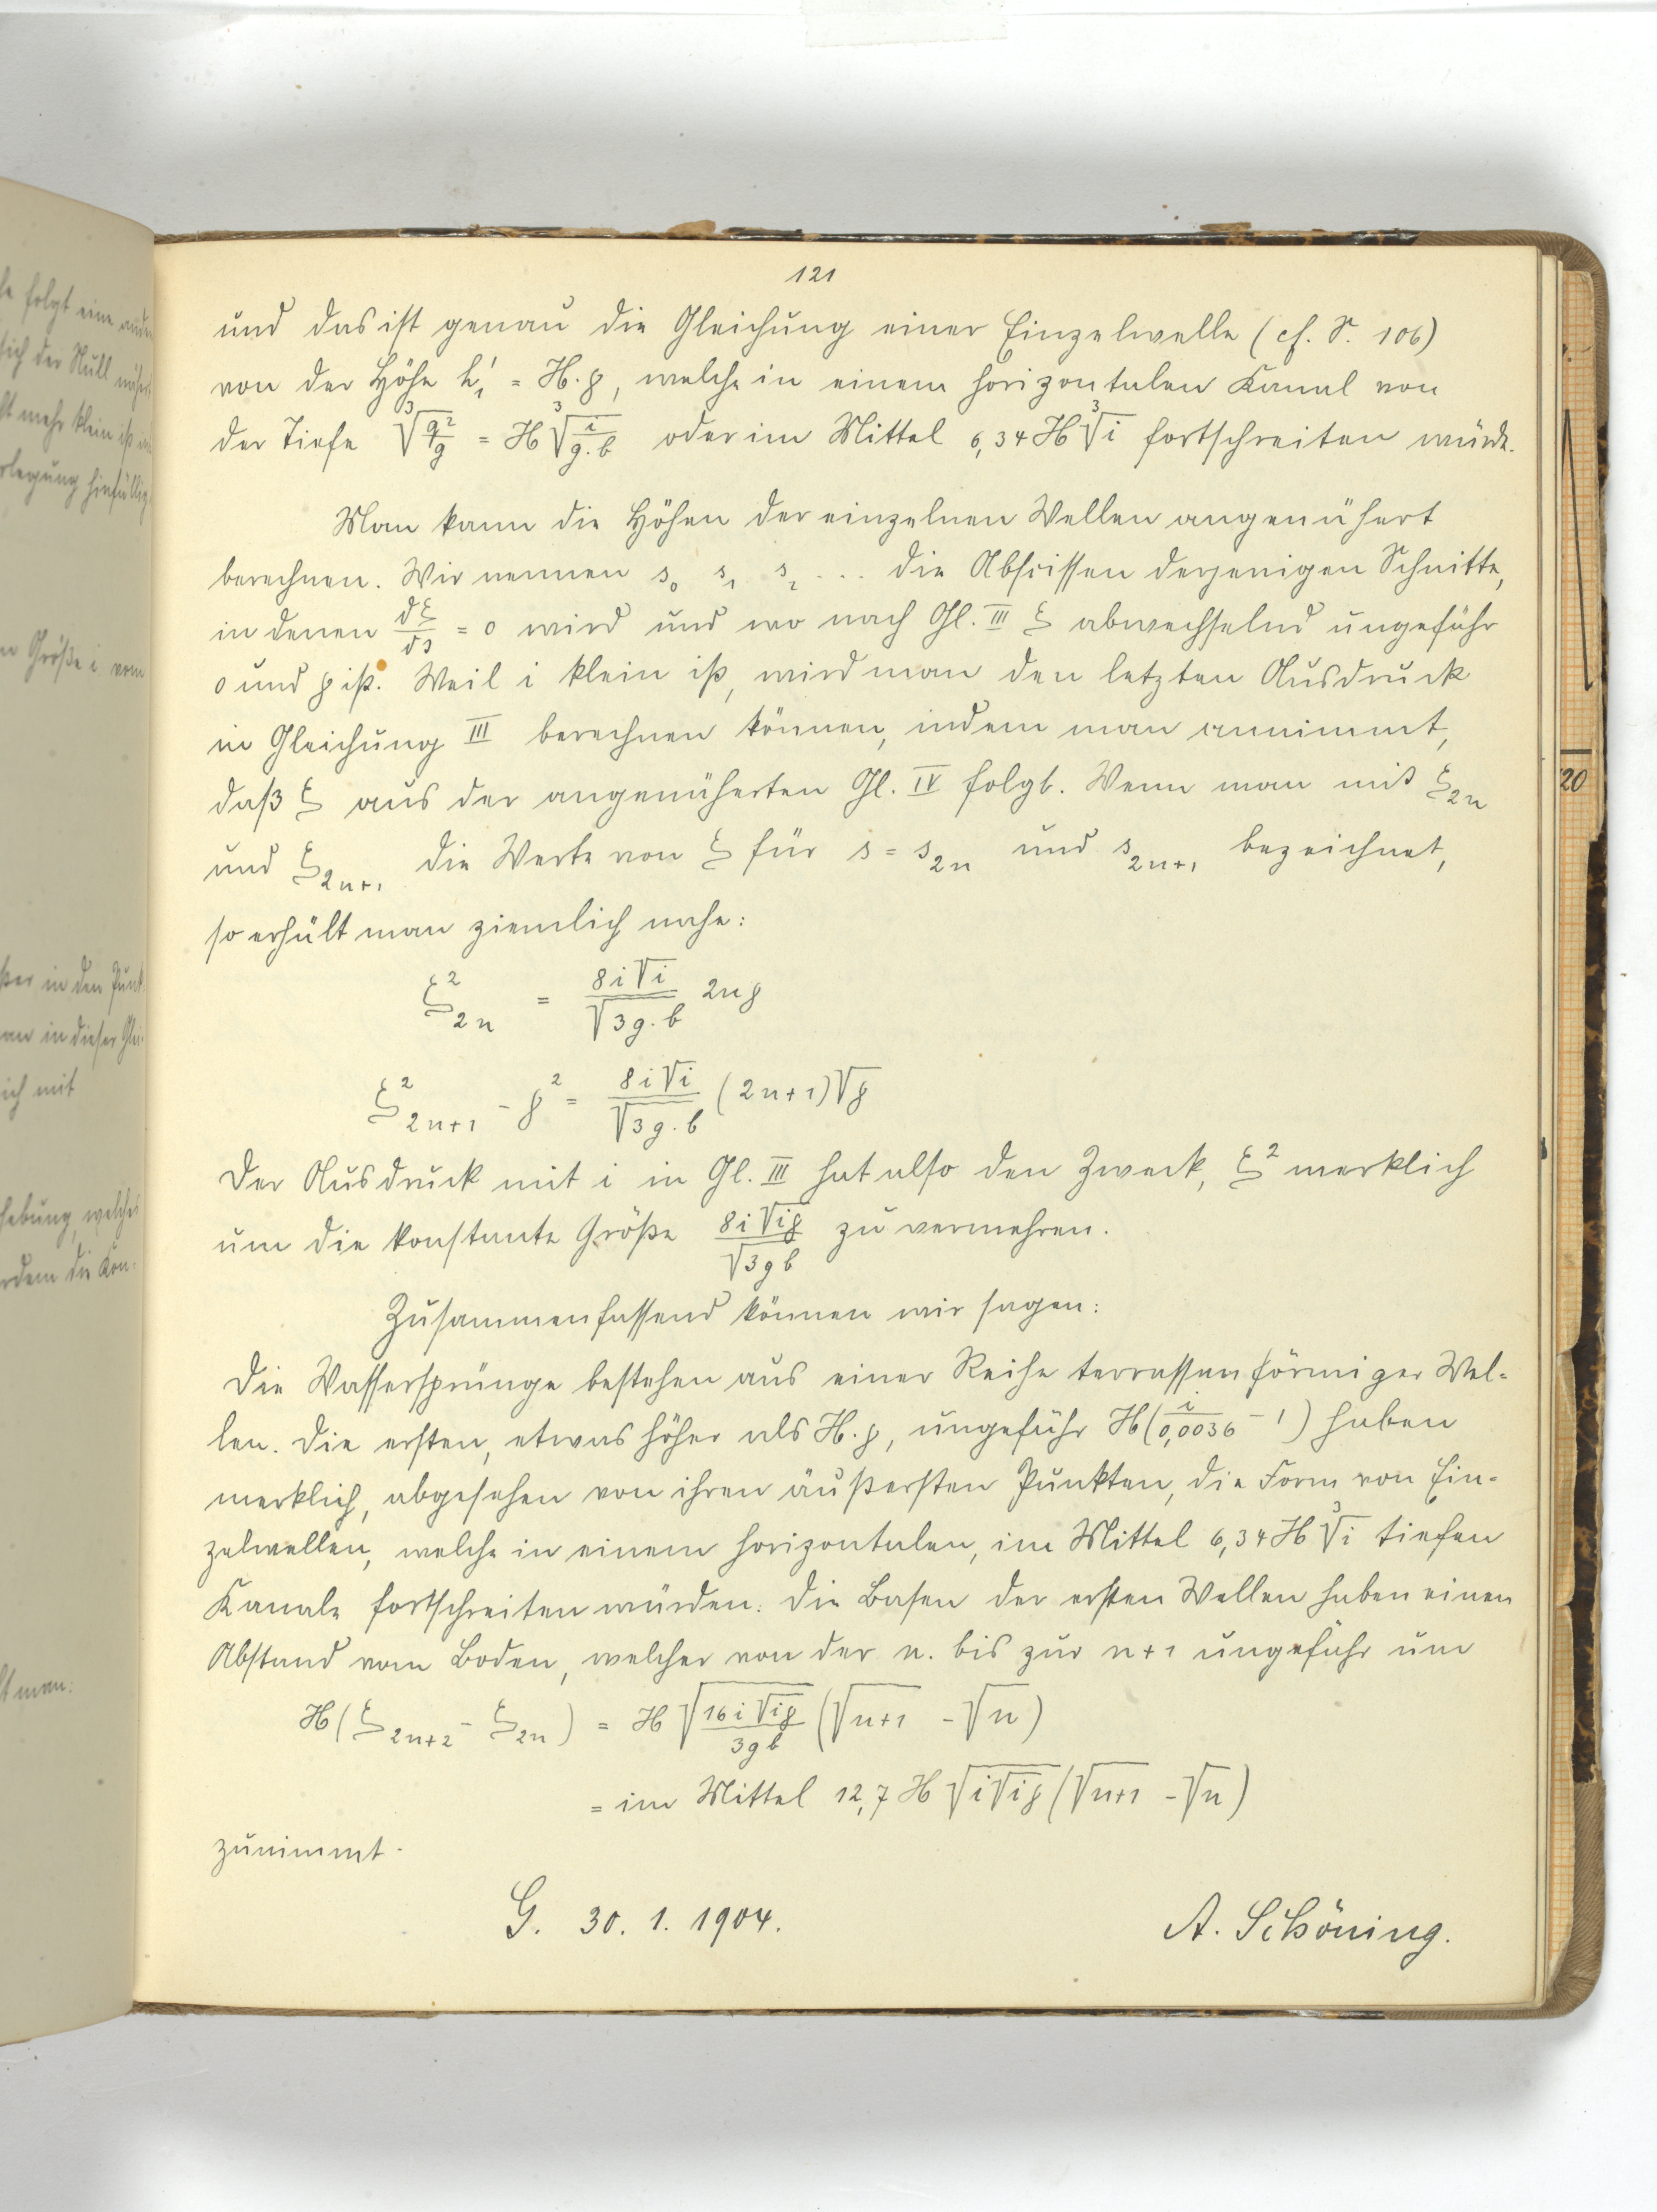 121
und das ist genau die Gleichung einer Einzelwelle (cf. S. 106)
von der Höhe h₁' = H.p, welche in einem horizontalen Kanal von
der Tiefe ∛(q²/g) = H ∛(i/(g.b)) oder im Mittel 6,34 H ∛i fortschreiten würde.
Man kann die Höhen der einzelnen Wellen angenähert
berechnen. Wir nennen s₀ s₁ s₂ ... die Abscissen derjenigen Schnitte,
in denen dξ/ds = 0 wird und wo nach Gl. III ξ abwechselnd ungefähr
0 und p ist. Weil i klein ist, wird man den letzten Ausdruck
in Gleichung III berechnen können, indem man annimmt,
daß ξ aus der angenäherten Gl. IV folgt. Wenn man mit ξ₂ₙ
und ξ₂ₙ₊₁ die Werte von ξ für s = s₂ₙ und s₂ₙ₊₁ bezeichnet,
so erhält man ziemlich nahe:
ξ²₂ₙ = 8i√i/√(3g.b) 2np
ξ²₂ₙ₊₁ - p² = 8i√i/√(3g.b) (2n+1)√p
Der Ausdruck mit i in Gl. III hat also den Zweck, ξ² merklich
um die konstante Größe 8i√(ip)/√(3gb) zu vermehren.
Zusammenfassend können wir sagen:
Die Wassersprünge bestehen aus einer Reihe terrassenförmiger Wel-
len. Die ersten, etwas höher als H.p, ungefähr H(i/0,0036 - 1) haben
merklich, abgesehen von ihren äußersten Punkten, die Form von Ein-
zelwellen, welche in einem horizontalen, im Mittel 6,34 H ∛i tiefen
Kanale fortschreiten würden. Die Basen der ersten Wellen haben einen
Abstand vom Boden, welcher von der n. bis zur n+1 ungefähr um
H(ξ₂ₙ₊₂ - ξ₂ₙ) = H √(16i√(ip)/3gb) (√(n+1) - √n)
= im Mittel 12,7 H √(i√(ip)) (√(n+1) - √n)
zunimmt.
G. 30. 1. 1904.
A. Schöning.
20